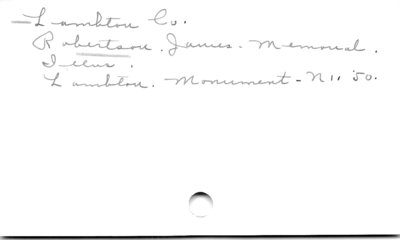 Lambton Co.
Robertson. James. Memorial.
Illus.
Lambton. Monument - N 11 '50.